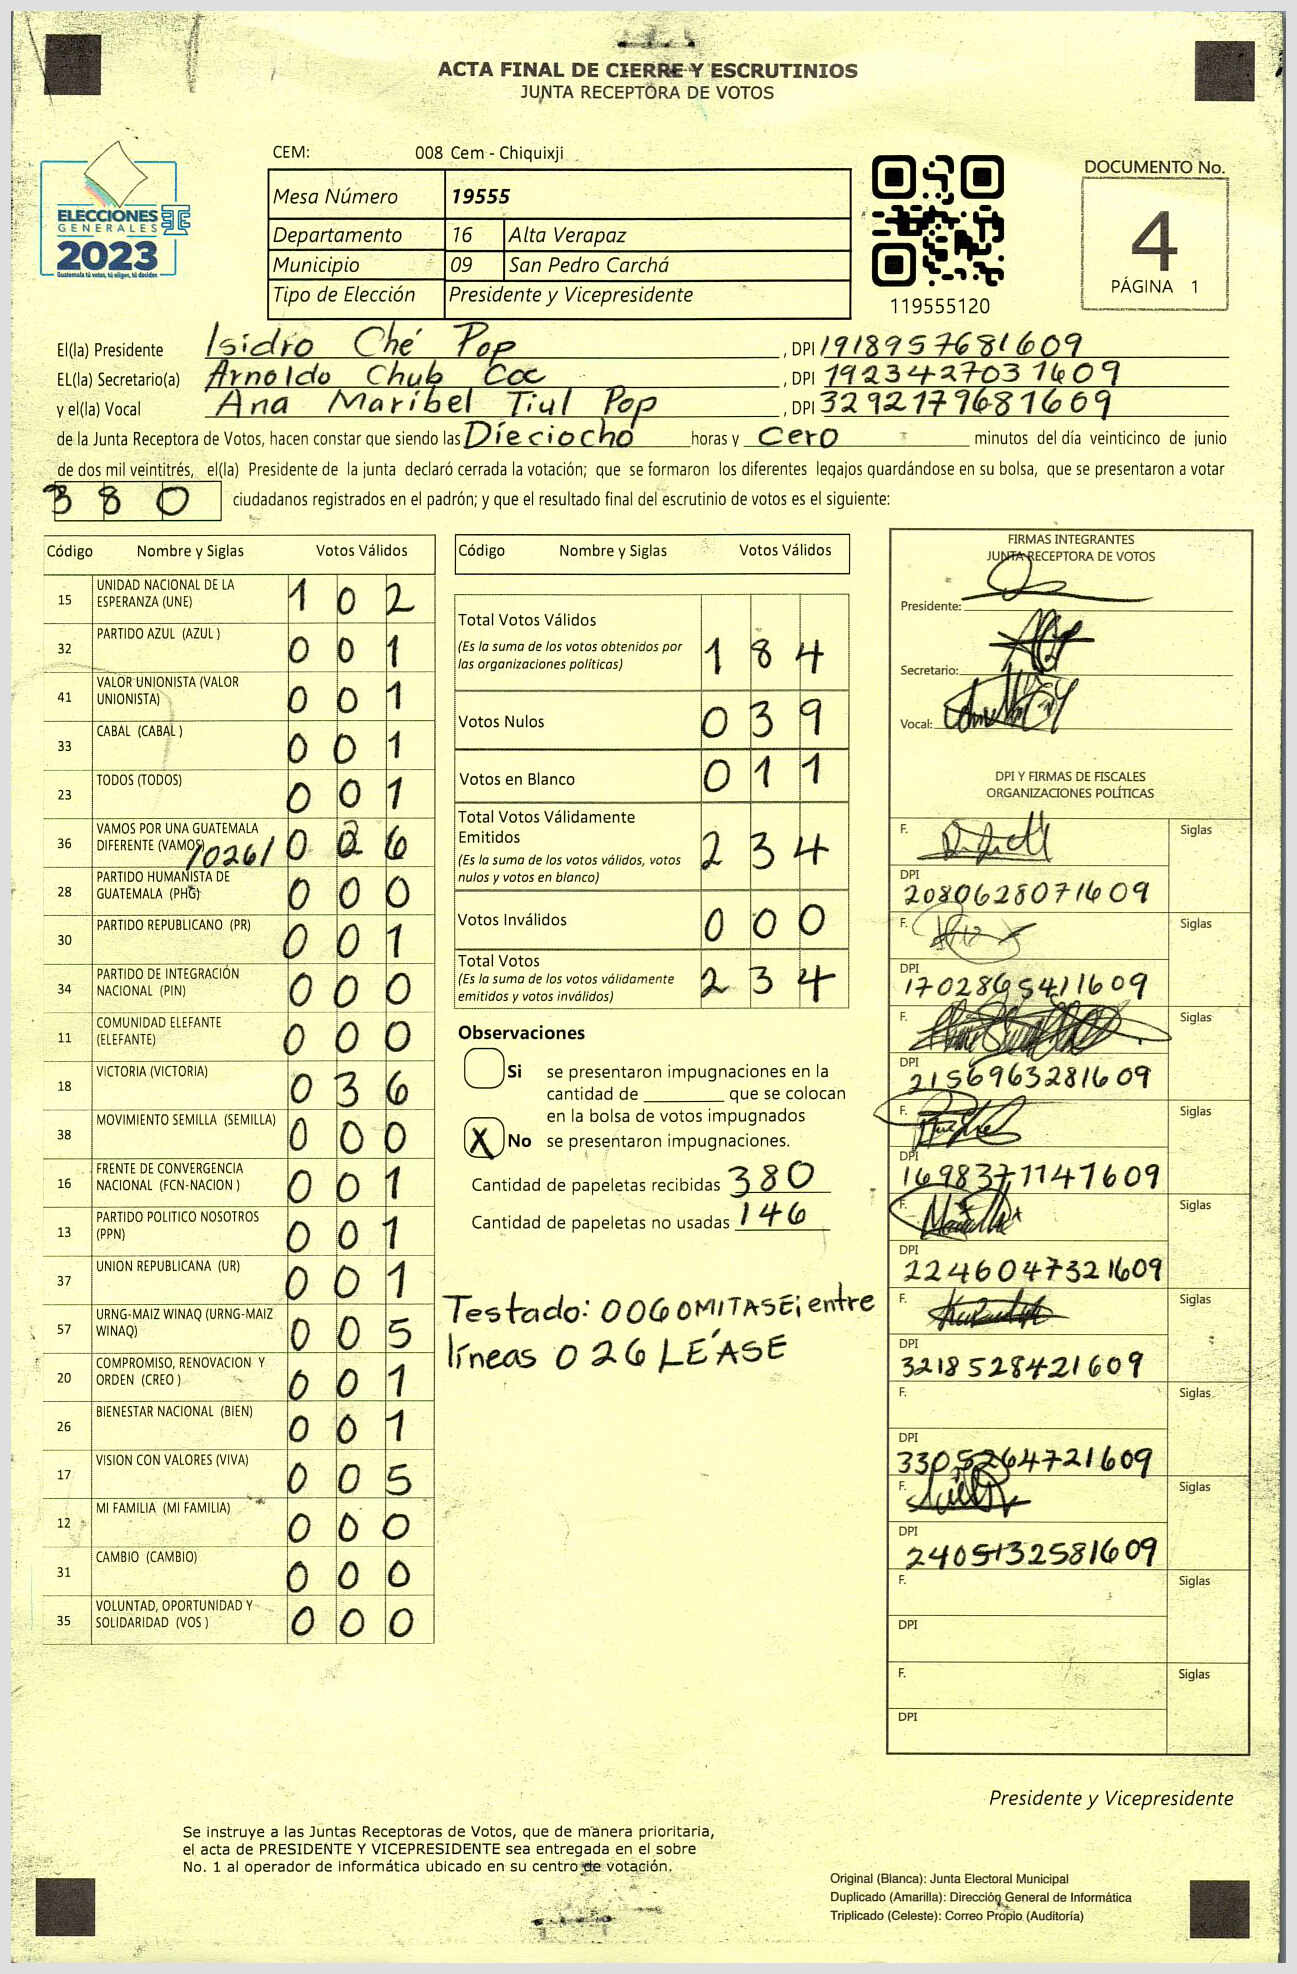 ACTA FINAL DE CIERRE Y ESCRUTINIOS
JUNTA RECEPTORA DE VOTOS
CEM: 008 Cem - Chiquixji
Mesa Número 19555
Departamento 16 Alta Verapaz
Municipio 09 San Pedro Carchá
Tipo de Elección Presidente y Vicepresidente
ELECCIONES
GENERALES
2023
Guatemala tú votas, tú eliges, tú decides
119555120
DOCUMENTO No.
4
PÁGINA 1
El(la) Presidente Isidro Ché Pop , DPI 1918957681609
EL(la) Secretario(a) Arnoldo Chub Coc , DPI 1923427031609
y el(la) Vocal Ana Maribel Tiul Pop , DPI 3292179681609
de la Junta Receptora de Votos, hacen constar que siendo las Dieciocho horas y cero minutos del día veinticinco de junio
de dos mil veintitrés, el(la) Presidente de la junta declaró cerrada la votación; que se formaron los diferentes legajos guardándose en su bolsa, que se presentaron a votar
380 ciudadanos registrados en el padrón; y que el resultado final del escrutinio de votos es el siguiente:
Código Nombre y Siglas Votos Válidos
15 UNIDAD NACIONAL DE LA
ESPERANZA (UNE) 1 0 2
32 PARTIDO AZUL (AZUL ) 0 0 1
41 VALOR UNIONISTA (VALOR
UNIONISTA) 0 0 1
33 CABAL (CABAL ) 0 0 1
23 TODOS (TODOS) 0 0 1
36 VAMOS POR UNA GUATEMALA
DIFERENTE (VAMOS) /026/ 0 2 6
28 PARTIDO HUMANISTA DE
GUATEMALA (PHG) 0 0 0
30 PARTIDO REPUBLICANO (PR) 0 0 1
34 PARTIDO DE INTEGRACIÓN
NACIONAL (PIN) 0 0 0
11 COMUNIDAD ELEFANTE
(ELEFANTE) 0 0 0
18 VICTORIA (VICTORIA) 0 3 6
38 MOVIMIENTO SEMILLA (SEMILLA) 0 0 0
16 FRENTE DE CONVERGENCIA
NACIONAL (FCN-NACION ) 0 0 1
13 PARTIDO POLITICO NOSOTROS
(PPN) 0 0 1
37 UNION REPUBLICANA (UR) 0 0 1
57 URNG-MAIZ WINAQ (URNG-MAIZ
WINAQ) 0 0 5
20 COMPROMISO, RENOVACION Y
ORDEN (CREO ) 0 0 1
26 BIENESTAR NACIONAL (BIEN) 0 0 1
17 VISION CON VALORES (VIVA) 0 0 5
12 MI FAMILIA (MI FAMILIA) 0 0 0
31 CAMBIO (CAMBIO) 0 0 0
35 VOLUNTAD, OPORTUNIDAD Y
SOLIDARIDAD (VOS ) 0 0 0
Código Nombre y Siglas Votos Válidos
Total Votos Válidos
(Es la suma de los votos obtenidos por
las organizaciones políticas) 1 8 4
Votos Nulos 0 3 9
Votos en Blanco 0 1 1
Total Votos Válidamente
Emitidos
(Es la suma de los votos válidos, votos
nulos y votos en blanco) 2 3 4
Votos Inválidos 0 0 0
Total Votos
(Es la suma de los votos válidamente
emitidos y votos inválidos) 2 3 4
Observaciones
Si se presentaron impugnaciones en la
cantidad de ________ que se colocan
en la bolsa de votos impugnados
X No se presentaron impugnaciones.
Cantidad de papeletas recibidas 380
Cantidad de papeletas no usadas 146
Testado: 006 OMITASE; entre
líneas 026 LÉASE
FIRMAS INTEGRANTES
JUNTA RECEPTORA DE VOTOS
Presidente:
Secretario:
Vocal:
DPI Y FIRMAS DE FISCALES
ORGANIZACIONES POLÍTICAS
F. Siglas
DPI
2080628071609
F. Siglas
DPI
1702869541 1609
F. Siglas
DPI
2156963281609
F. Siglas
DPI
1698371147609
F. Siglas
DPI
2246047321609
F. Siglas
DPI
3218528421609
F. Siglas
DPI
3305264721609
F. Siglas
DPI
2405132581609
F. Siglas
DPI
F. Siglas
DPI
Presidente y Vicepresidente
Se instruye a las Juntas Receptoras de Votos, que de manera prioritaria,
el acta de PRESIDENTE Y VICEPRESIDENTE sea entregada en el sobre
No. 1 al operador de informática ubicado en su centro de votación.
Original (Blanca): Junta Electoral Municipal
Duplicado (Amarilla): Dirección General de Informática
Triplicado (Celeste): Correo Propio (Auditoría)